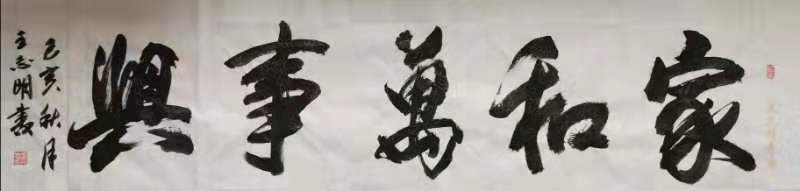 家和萬事興
己亥秋月
王志明書